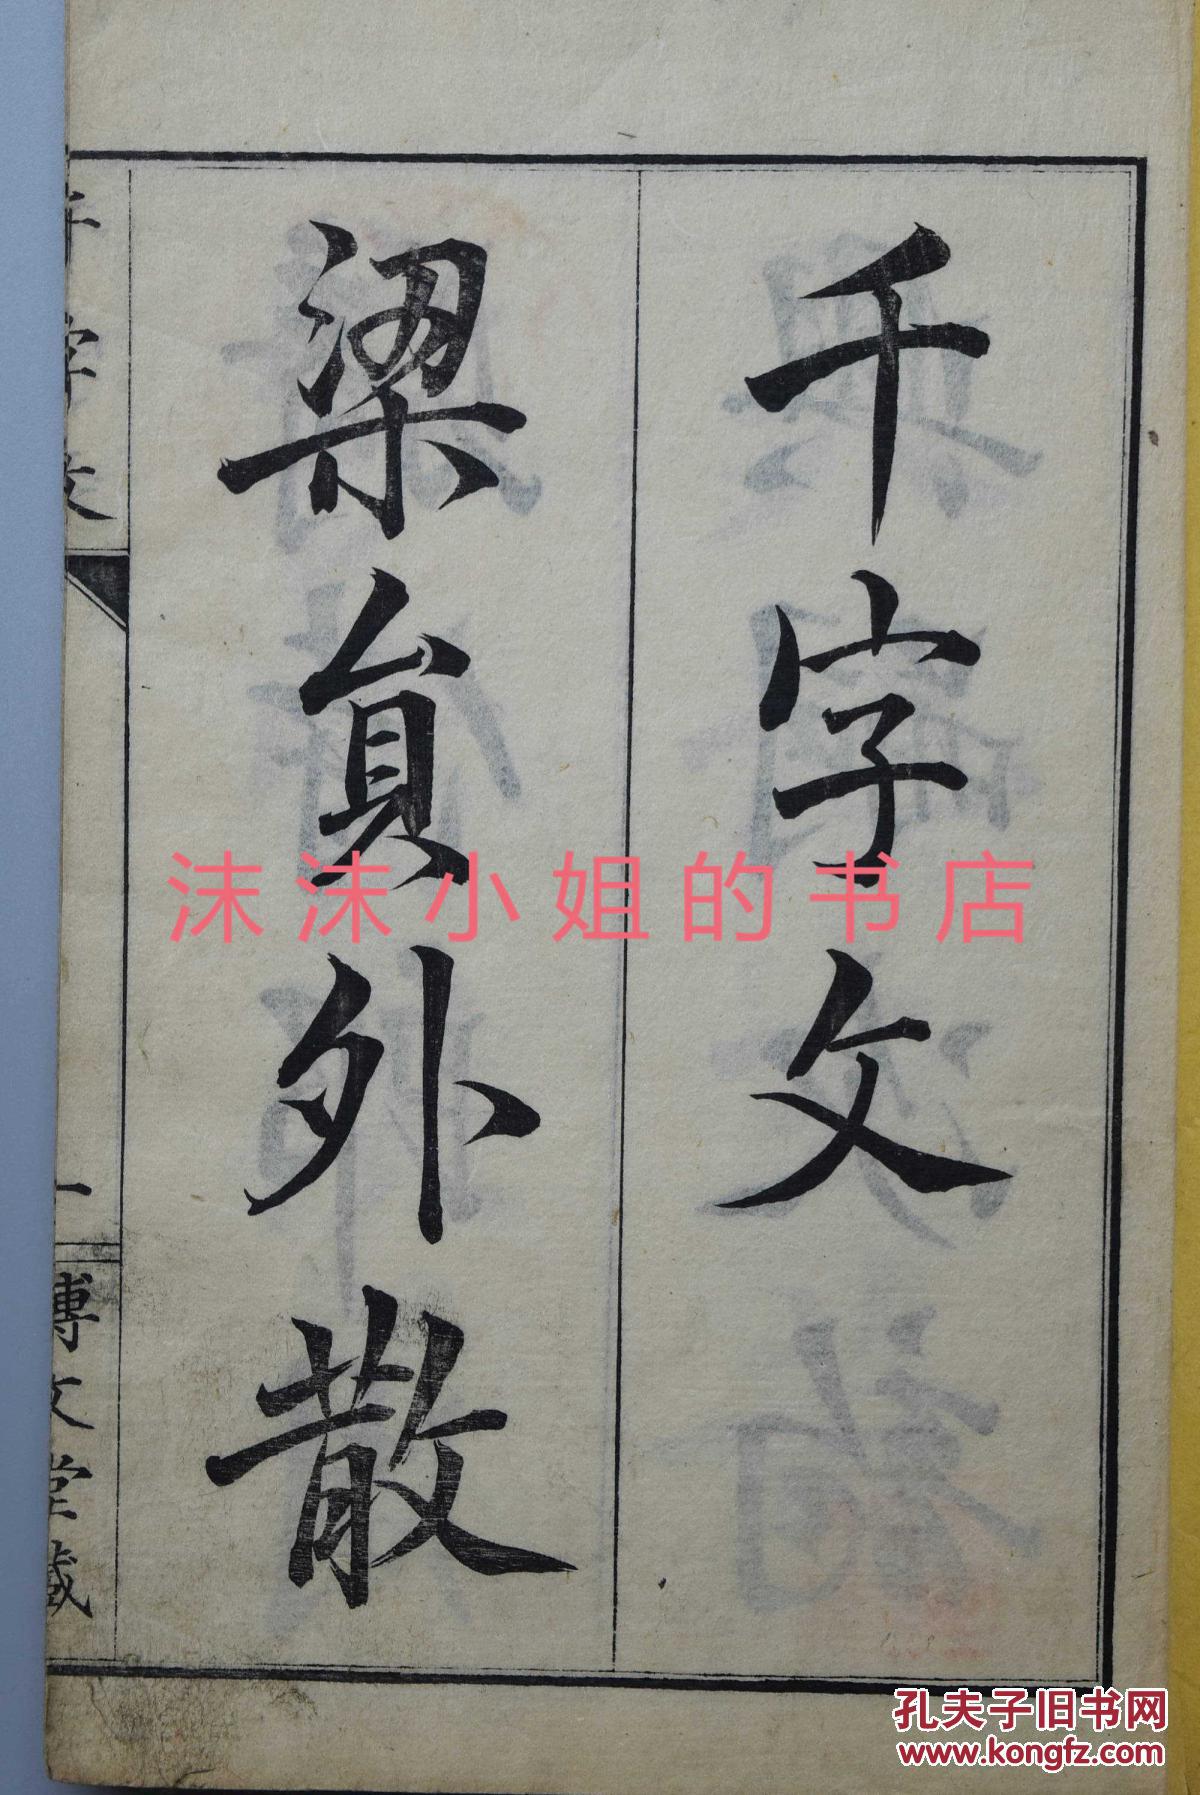 千字文
梁貟外散
千字文
一
博文堂藏
沫沫小姐的书店
孔夫子旧书网
www.kongfz.com